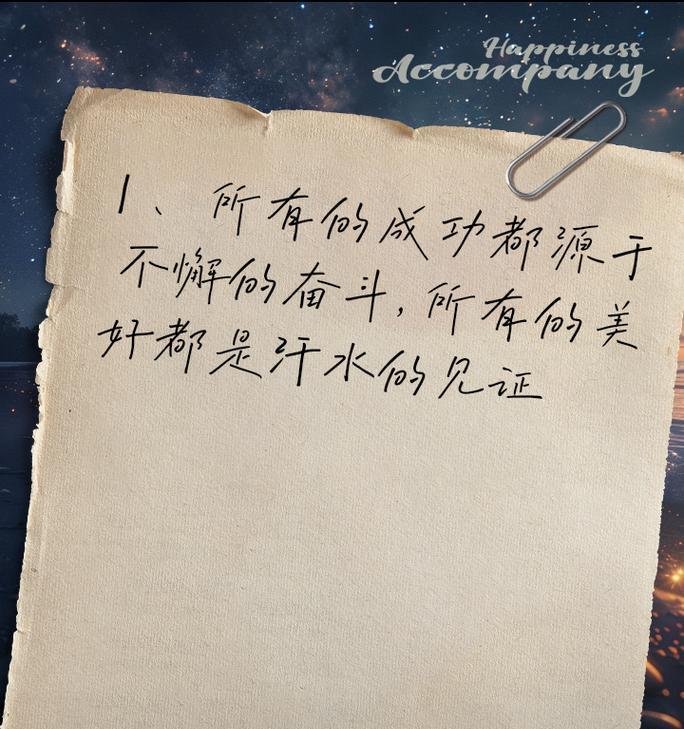 Happiness
Accompany
1、所有的成功都源于
不懈的奋斗,所有的美
好都是汗水的见证